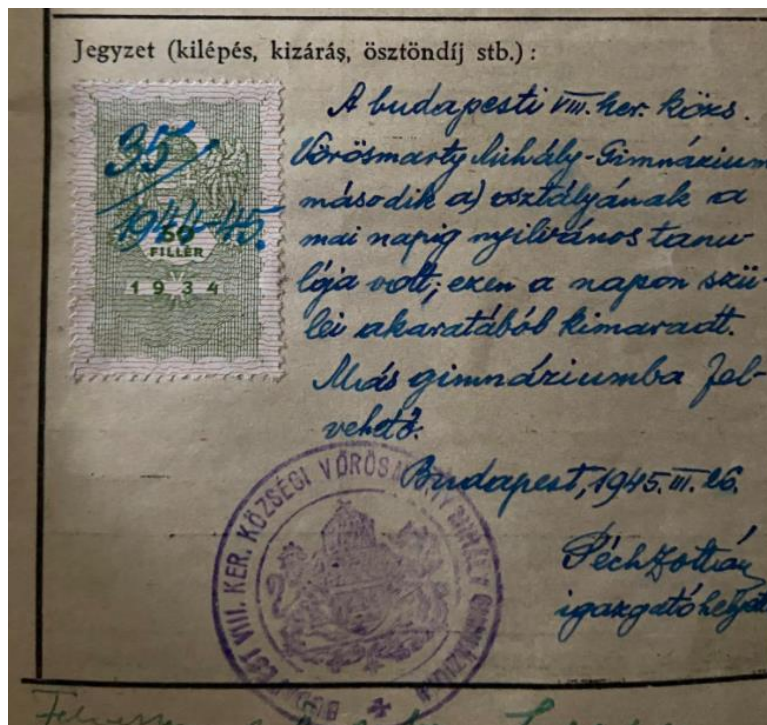 Jegyzet (kilépés, kizárás, ösztöndíj stb.) :
35/
1944-45.
50
FILLÉR
1934
A budapesti VIII. ker. közs.
Vörösmarty Mihály-Gimnázium
második a) osztályának a
mai napig nyilvános tanu-
lója volt; ezen a napon szü-
lei akaratából kimaradt.
Más gimnáziumba fel-
vehető.
Budapest, 1945. III. 26.
Péch Zoltán
igazgatóhelyet
BUDAPEST VIII. KER. KÖZSÉGI VÖRÖSMARTY MIHÁLY GIMNÁZIUM